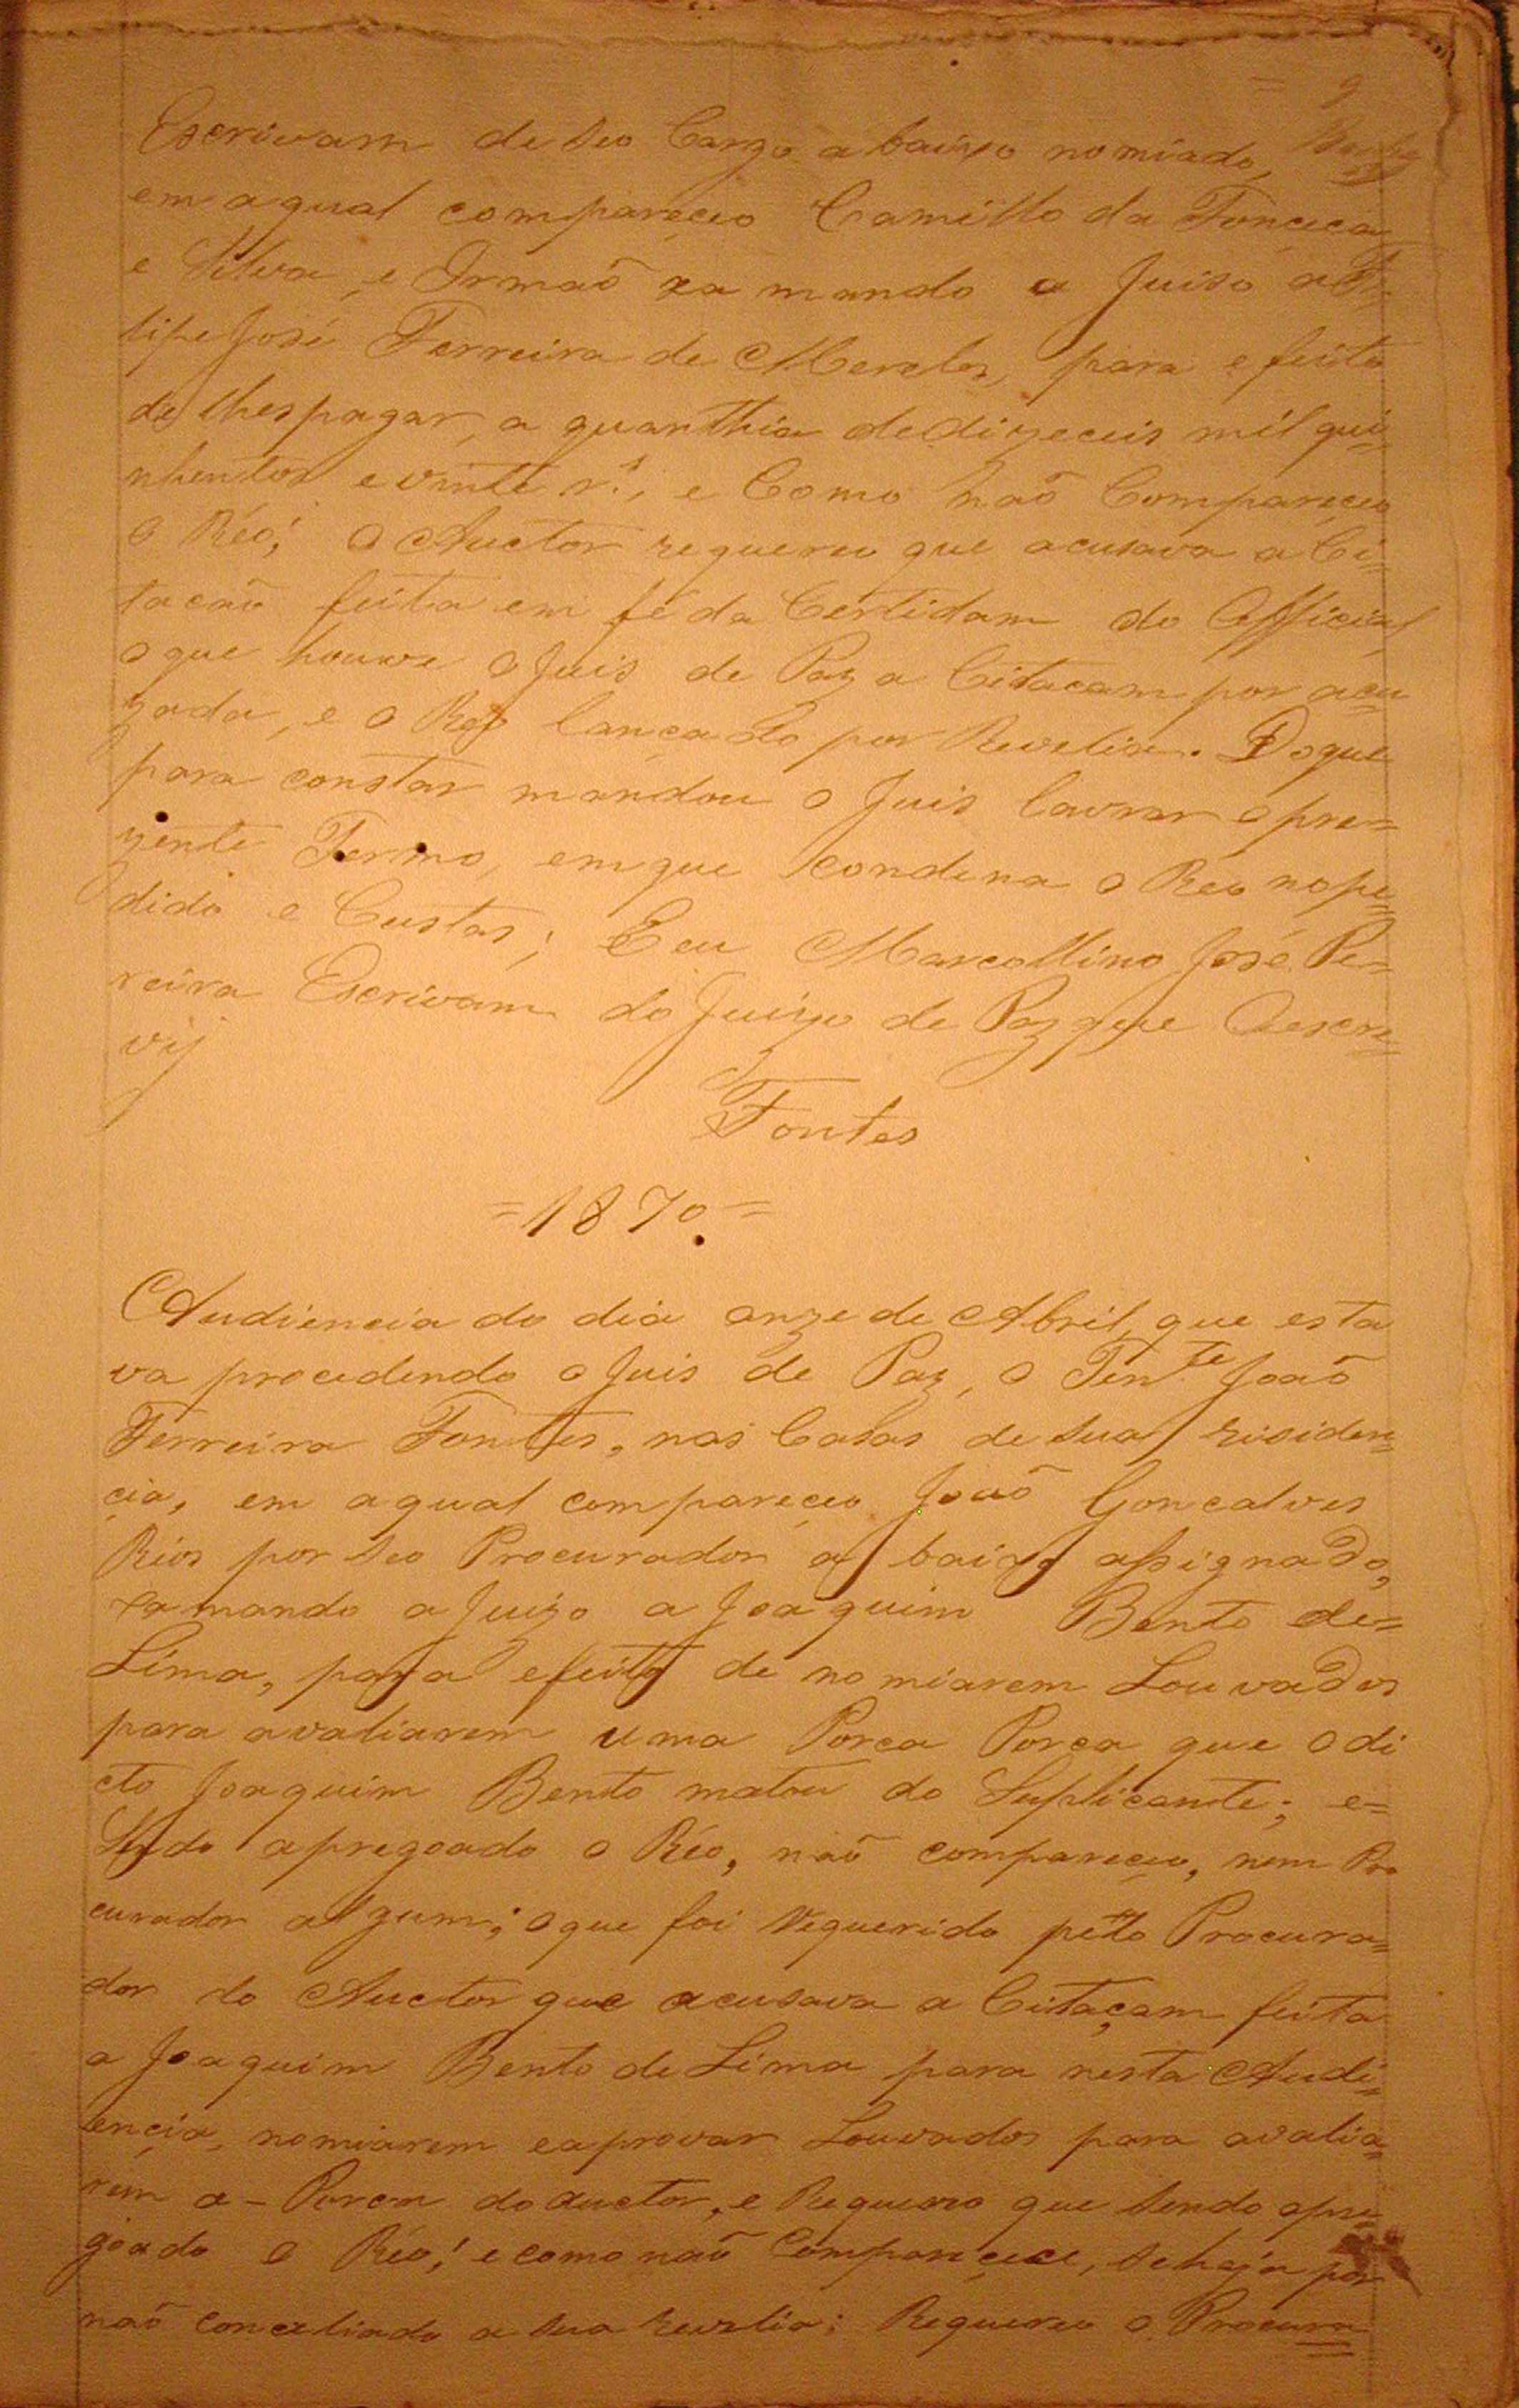 = 9
Escrivam de seo Cargo abaixo nomiado,
em a qual compareceo Camillo da Fonceca
e Silva, e Irmaõ xamando a Juiso a Fi-
lipe José Ferreira de Mereles, para efeito
de lhes pagar, a quanthia de dizeceis mil qui-
nhentos e vinte rs, e Como naõ Compareceo
O Réo; O Auctor requereu que acusava a Ci-
tacaõ feita em fé da Certidam do Official
o que houve O Juis de Paz a Citacam por acu
zada, e O Reo lançado por Revelia. Do que
para constar mandou O Juis lavrar o pre=
zente Termo, em que condena O Réo no pe=
dido e Custas; E eu Marcollino José Pe=
reira Escrivam do Juizo de Paz que O escre=
vij
Fontes
=1870.=
Audiencia do dia onze de Abril, que esta
va procedendo o Juis de Paz, O Tente João
Ferreira Fontes, nas Casas de sua risiden=
cia, em a qual compareçeo João Goncalves
Rios por seo Procurador abaixo assignado,
xamando a Juizo a Joaquim Bento de=
Lima, para efeito de nomiarem Louvados
para avaliarem uma Porca Porca que o di
cto Joaquim Bento matou do Suplicante; e=
Sendo apregoado o Réo, naõ compareçeo, nem Pro
curador algum; o que foi requerido pello Procura=
dor do Auctor que acusava a Citaçam feita
a Joaquim Bento de Lima para nesta Audi=
ençia, nomiarem e aprovar Louvados para avalia=
rem a - Porca do auctor, e Requereo que sendo apre=
goado O Réo; e como naõ Compareçece, se haja por
naõ conceliado a sua revelia; Requereo O Procura